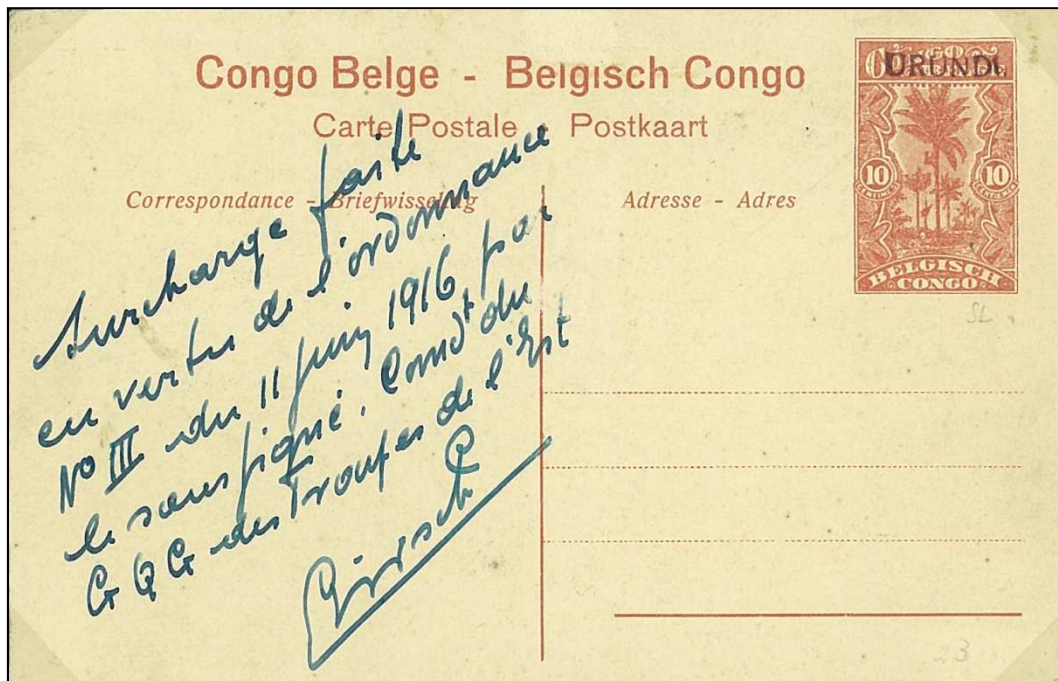 Congo Belge - Belgisch Congo
Carte Postale - Postkaart
Correspondance - Briefwisseling
Adresse - Adres
URUNDI
10
10
BELGISCH
CONGO
Surcharge faite
en vertu de l'ordonnance
No III du 11 juin 1916 par
le soussigné. Comdt du
G Q G des Troupes de l'Est